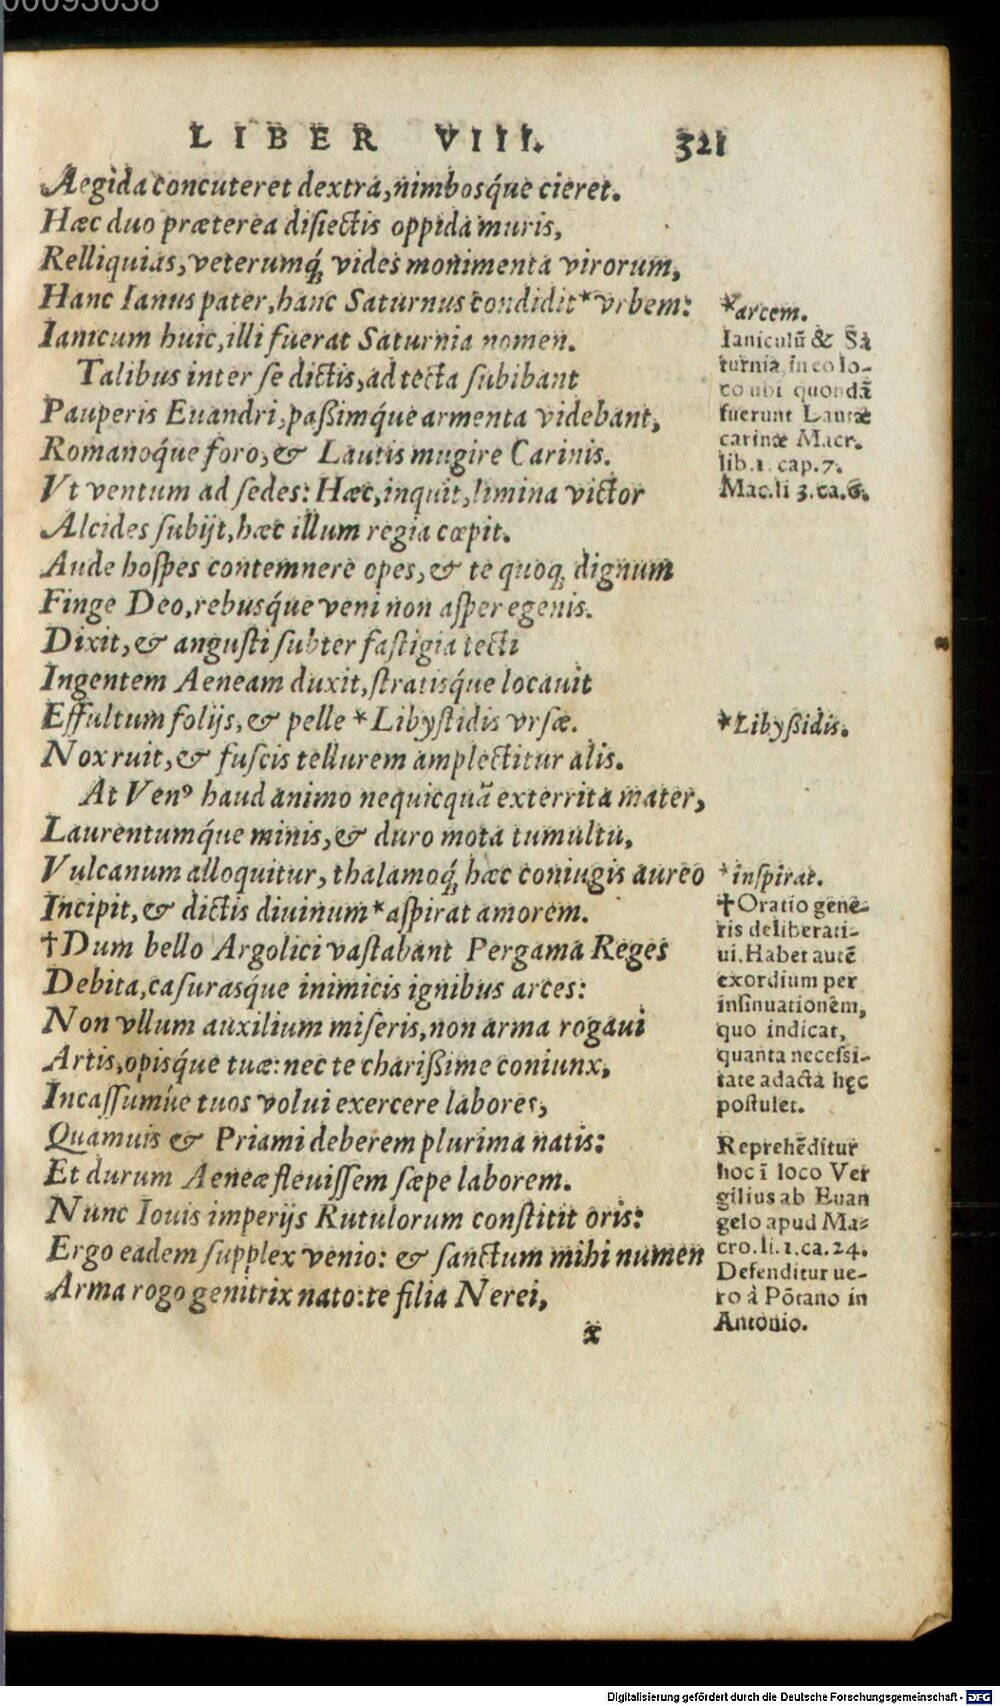 00093038
LIBER VIII. 321
Aegida concuteret dextra, nimbosq́ue cieret.
Hæc duo præterea disiectis oppida muris,
Relliquias, veterumq́; vides monimenta virorum,
Hanc Ianus pater, hanc Saturnus condidit * vrbem:
Ianicum huic, illi fuerat Saturnia nomen.
Talibus inter se dictis, ad tecta subibant
Pauperis Euandri, paßimq́ue armenta videbant,
Romanoq́ue foro, & Lautis mugire Carinis.
Vt ventum ad sedes: Hæc, inquit, limina victor
Alcides subijt, hæc illum regia cœpit.
Aude hospes contemnere opes, & te quoq; dignum
Finge Deo, rebusq́ue veni non asper egenis.
Dixit, & angusti subter fastigia tecti
Ingentem Aeneam duxit, stratisq́ue locauit
Effultum folijs, & pelle * Libystidis vrsæ.
Nox ruit, & fuscis tellurem amplectitur alis.
At Venꝰ haud animo nequicquā exterrita mater,
Laurentumq́ue minis, & duro mota tumultu,
Vulcanum alloquitur, thalamoq́; hæc coniugis aureo
Incipit, & dictis diuinum * aspirat amorem.
†Dum bello Argolici vastabant Pergama Reges
Debita, casurasq́ue inimicis ignibus arces:
Non vllum auxilium miseris, non arma rogaui
Artis, opisq́ue tuæ: nec te charißime coniunx,
Incassumúe tuos volui exercere labores,
Quamuis & Priami deberem plurima natis:
Et durum Aeneæ fleuissem sæpe laborem.
Nunc Iouis imperijs Rutulorum constitit oris:
Ergo eadem supplex venio: & sanctum mihi numen
Arma rogo genitrix nato: te filia Nerei,
x
*arcem.
Ianiculū & Sa
turnia in eo lo-
co ubi quondā
fuerunt Lautæ
carinæ Macr.
lib.1. cap.7.
Mac.li 3.ca.6.
*Libyßidis.
*inspirat.
†Oratio gene-
ris deliberati-
ui. Habet autē
exordium per
insinuationem,
quo indicat,
quanta necessi-
tate adacta hęc
postulet.
Reprehēditur
hoc ī loco Ver
gilius ab Euan
gelo apud Ma-
cro.li.1.ca.24.
Defenditur ue-
ro à Pōtano in
Antonio.
Digitalisierung gefördert durch die Deutsche Forschungsgemeinschaft - DFG